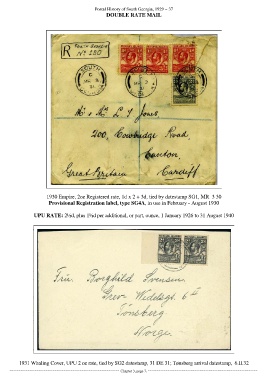 Postal History of South Georgia, 1929 ~ 37
DOUBLE RATE MAIL
R
South Georgia
No 280
SOUTH
SOUTH
Mr & Mrs L. J. Jones
200, Cowbridge Road
Canton,
Great Britain
Cardiff
1930 Empire, 2oz Registered rate, 1d x 2 + 3d, tied by datestamp SG1, MR 3 30
Provisional Registration label, type SG4A, in use in February - August 1930
UPU RATE: 2½d, plus 1½d per additional, or part, ounce. 1 January 1926 to 31 August 1940
Fru. Borghild Svensen
Grev Wedelsgt. 6
Tönsberg
Norge
1931 Whaling Cover, UPU 2 oz rate, tied by SG2 datestamp, 31 DE 31; Tonsberg arrival datestamp, 6.II.32